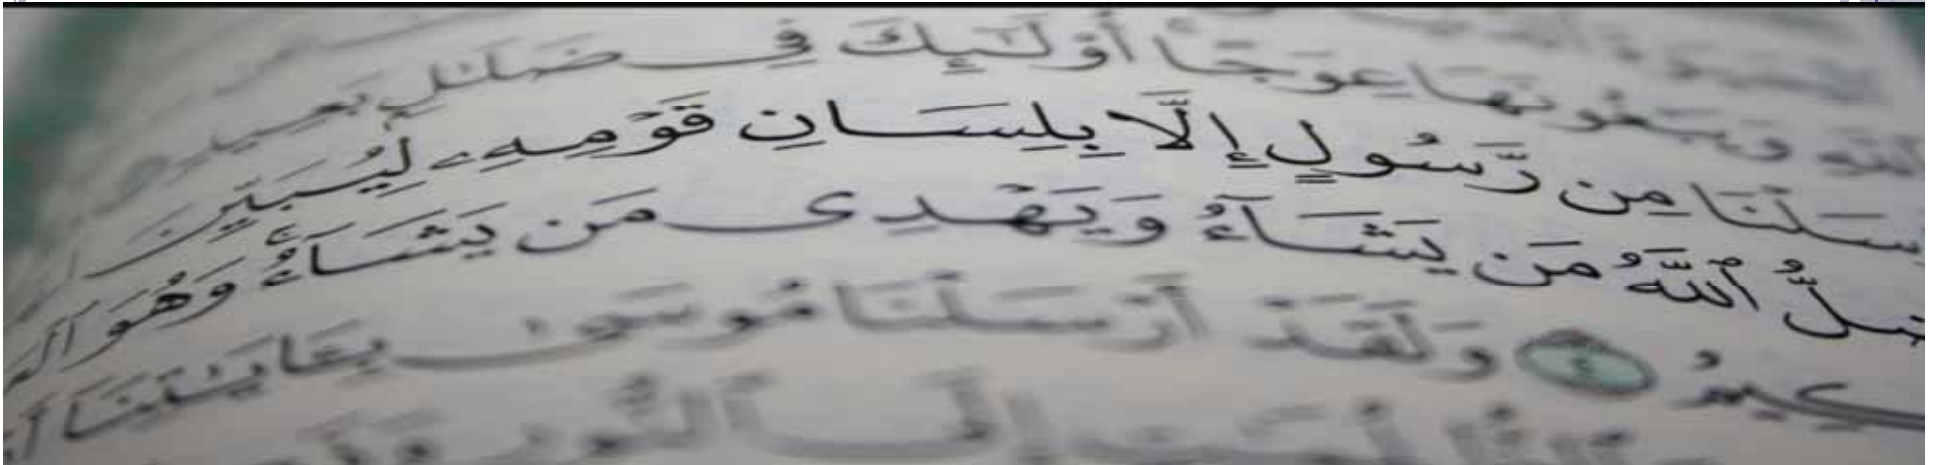 ٱللَّهِ وَيَبْغُونَهَا عِوَجًا أُو۟لَـٰٓئِكَ فِى ضَلَـٰلٍۭ بَعِيدٍ
سَلْنَا مِن رَّسُولٍ إِلَّا بِلِسَانِ قَوْمِهِۦ لِيُبَيِّنَ
ضِلُّ ٱللَّهُ مَن يَشَآءُ وَيَهْدِى مَن يَشَآءُ ۚ وَهُوَ ٱلْعَ
كِيمُ ٤ وَلَقَدْ أَرْسَلْنَا مُوسَىٰ بِـَٔايَـٰتِنَآ أَ
إِلَى ٱلنُّورِ